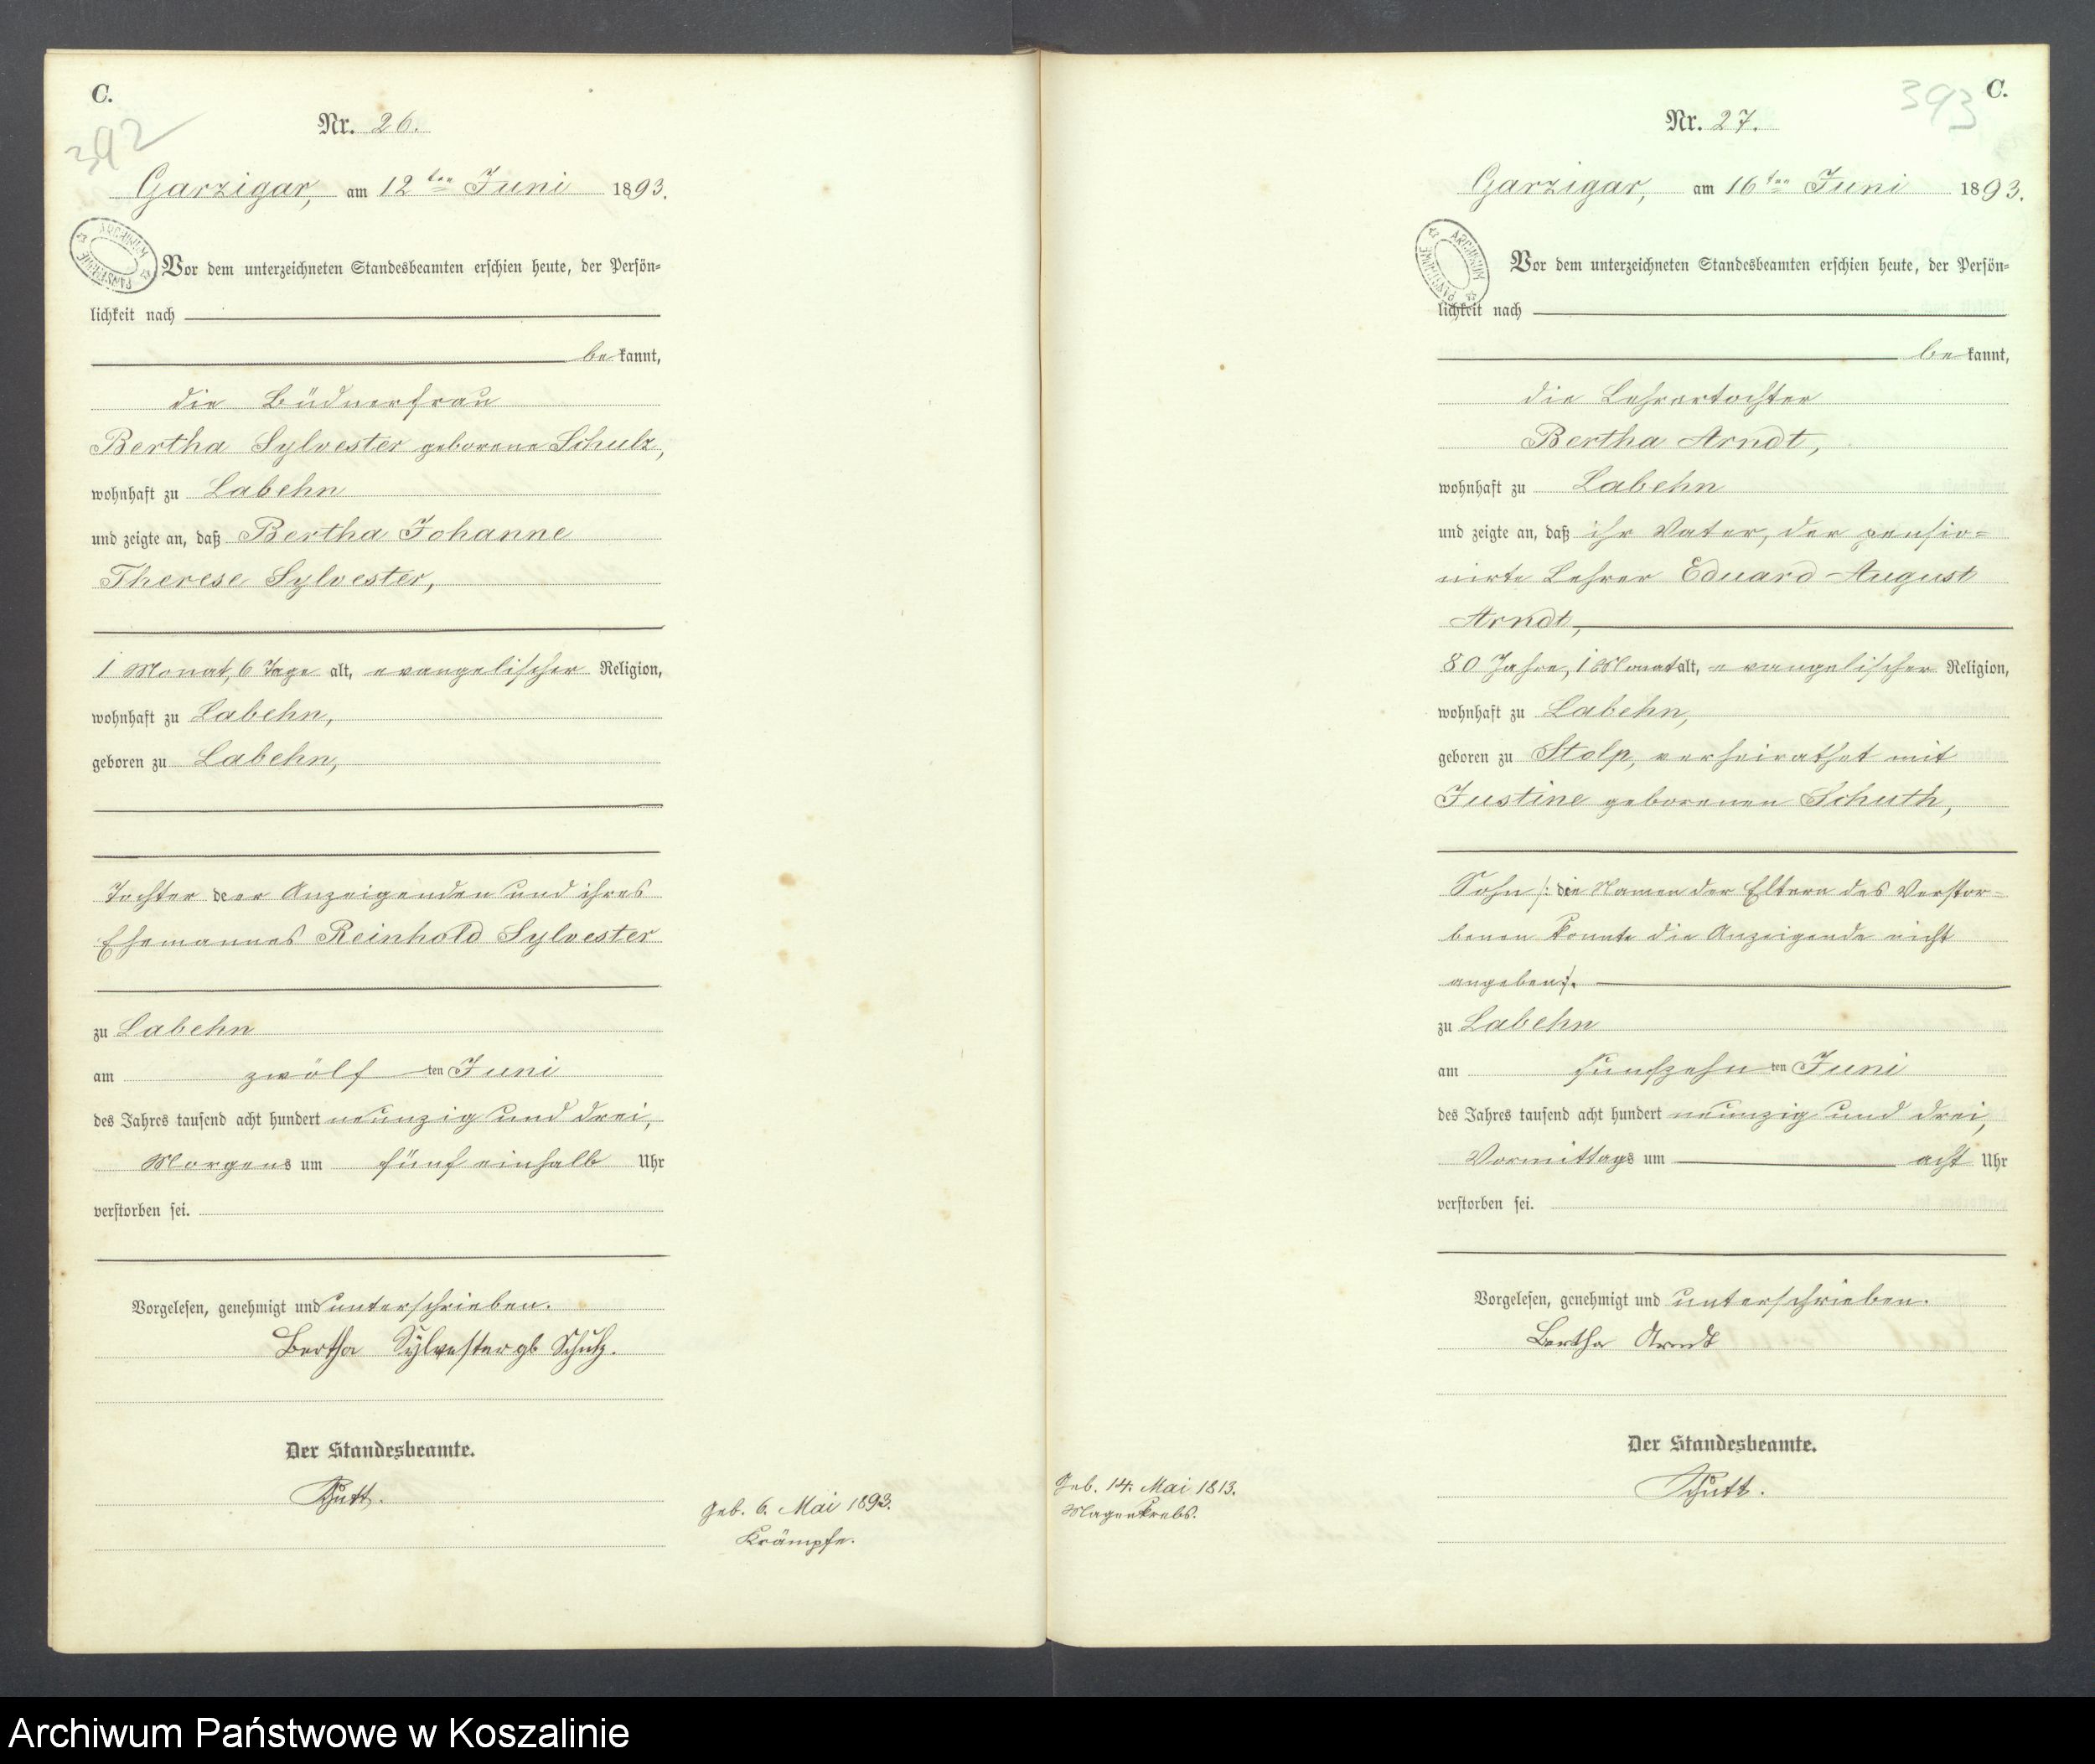 C.
392
Nr. 26.
Garzigar, am 12ten Juni 1893.
ARCHIWUM PAŃSTWOWE
Vor dem unterzeichneten Standesbeamten erschien heute, der Persön=
lichkeit nach
bekannt,
die Büdnerfrau
Bertha Sylvester geborene Schulz,
wohnhaft zu Labehn
und zeigte an, daß Bertha Johanne
Therese Sylvester,
1 Monat, 6 Tage alt, evangelischer Religion,
wohnhaft zu Labehn,
geboren zu Labehn,
Tochter der Anzeigenden und ihres
Ehemannes Reinhold Sylvester
zu Labehn
am zwölften Juni
des Jahres tausend acht hundert neunzig und drei,
Morgens um fünf einhalb Uhr
verstorben sei.
Vorgelesen, genehmigt und unterschrieben.
Bertha Sylvester gb Schulz.
Der Standesbeamte.
Schutt.
Geb. 6. Mai 1893.
Krämpfe.
393
C.
Nr. 27.
Garzigar, am 16ten Juni 1893.
ARCHIWUM PAŃSTWOWE
Vor dem unterzeichneten Standesbeamten erschien heute, der Persön=
lichkeit nach
bekannt,
die Lehrertochter
Bertha Arndt,
wohnhaft zu Labehn
und zeigte an, daß ihr Vater, der pensio=
nirte Lehrer Eduard August
Arndt,
80 Jahre, 1 Monat alt, evangelischer Religion,
wohnhaft zu Labehn,
geboren zu Stolp, verheirathet mit
Justine geborenen Schuth,
Sohn /: die Namen der Eltern des Verstor=
benen konnte die Anzeigende nicht
angeben :/.
zu Labehn
am fünfzehnten Juni
des Jahres tausend acht hundert neunzig und drei,
Vormittags um acht Uhr
verstorben sei.
Vorgelesen, genehmigt und unterschrieben.
Bertha Arndt
Der Standesbeamte.
Schutt.
Geb. 14. Mai 1813.
Magenkrebs.
Archiwum Państwowe w Koszalinie